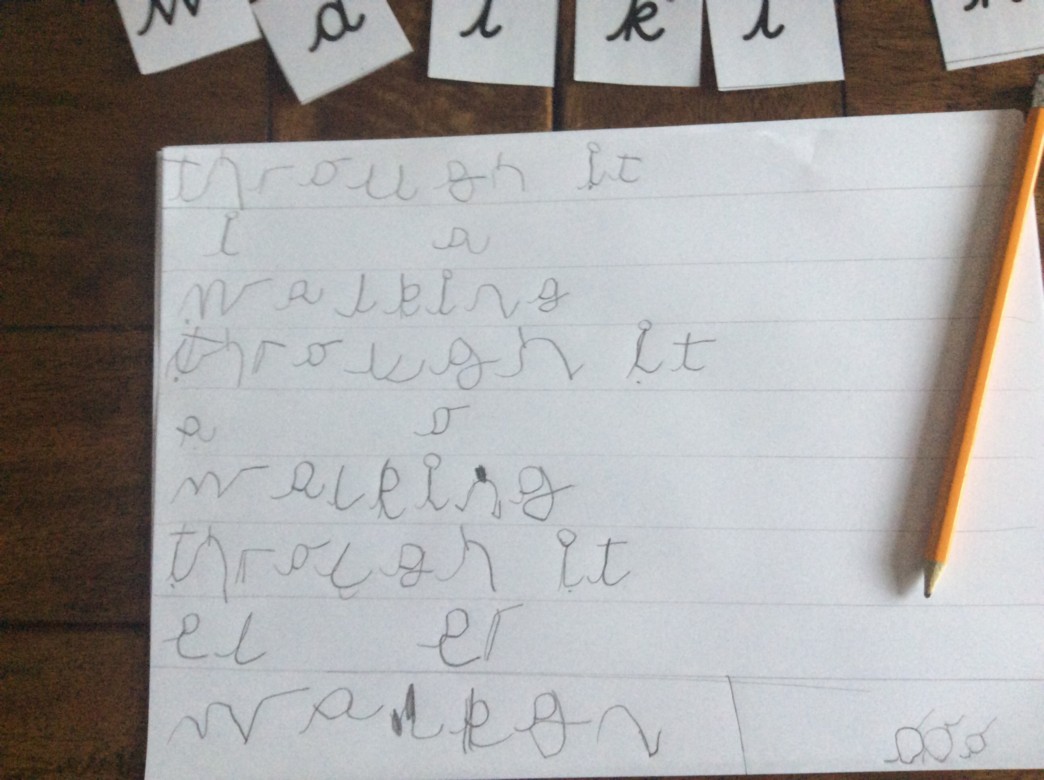 w a l k i n
through it
i a
walking
through it
a o
walking
through it
el er
walkgn ooo